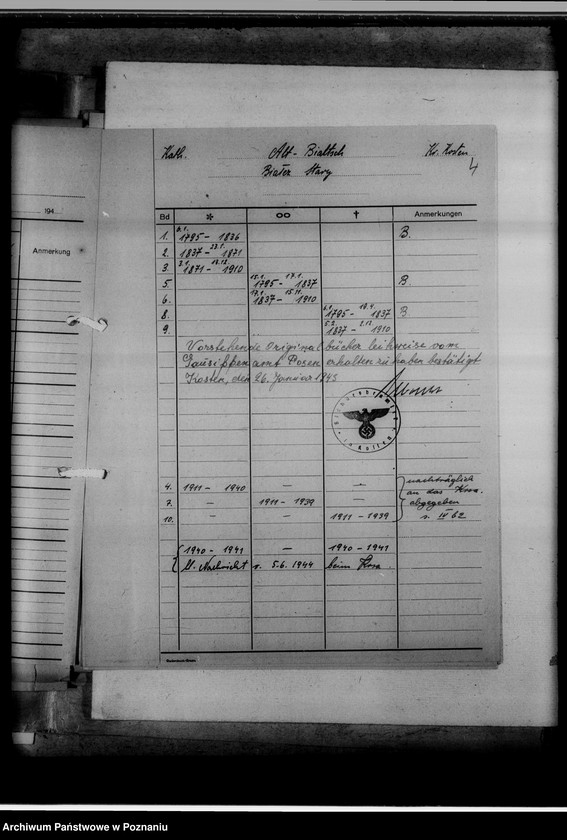 194
Anmerkung
Kath. Alt - Bialtsch Kr. Kosten
Białcz Stary
4
Bd * ∞ † Anmerkungen
1. 1795 - 1836 B.
2. 1837 - 1871
3. 1871 - 1910
5. 1795 - 1837 B.
6. 1837 - 1910
8. 1795 - 1837 B
9. 1837 - 1910
Vorstehende Originalbücher leihweise vom
Gausippenamt Posen erhalten zu haben bestätigt
Kosten, den 26. Januar 1943
in Kosten
4. 1911 - 1940 - - nachträglich
7. - 1911 - 1939 - an das
10. - - 1911 - 1939 abgegeben
s. IV 62
1940 - 1941 - 1940 - 1941
lt. Nachricht v. 5.6. 1944 beim
Archiwum Państwowe w Poznaniu